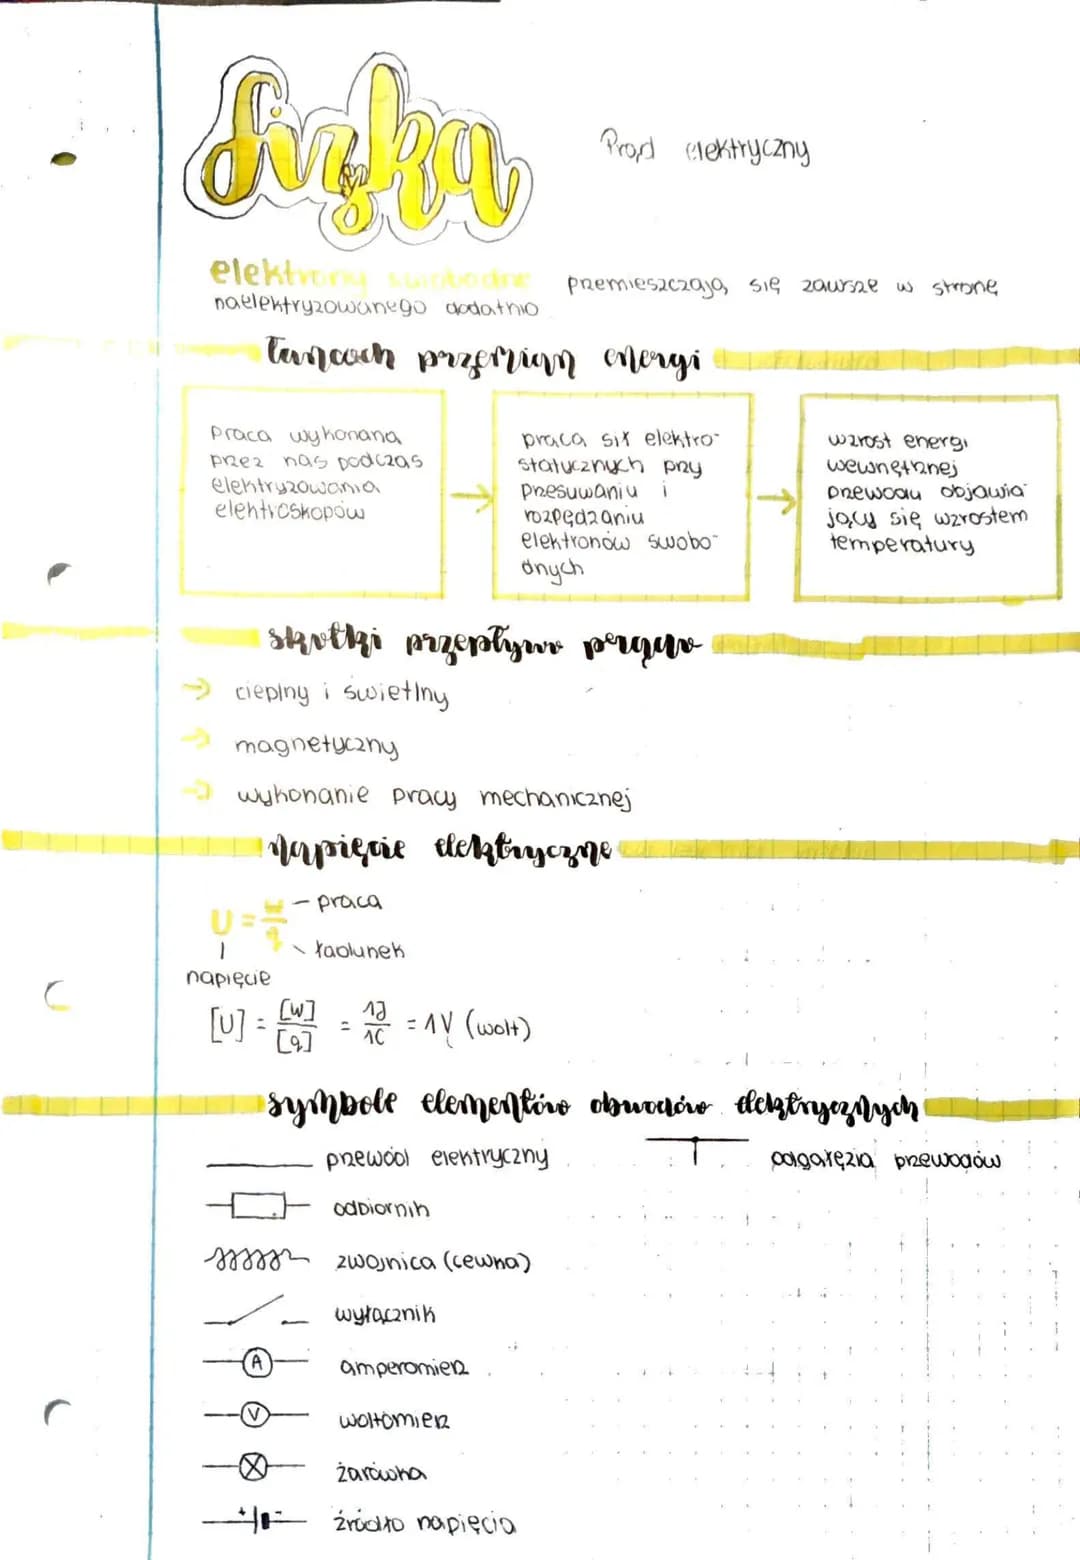 fizyka
Prąd elektryczny
elektrony swobodne przemieszczają się zawsze w stronę
naelektryzowanego dodatnio
łańcuch przemian energi
praca wykonana
przez nas podczas
elektryzowania
elektroskopów
praca sił elektro-
statycznych przy
przesuwaniu i
rozpędzaniu
elektronów swobo-
dnych
wzrost energi
wewnętrznej
przewodu objawia
jący się wzrostem
temperatury
skutki przepływu prądu
→ cieplny i świetlny
→ magnetyczny
→ wykonanie pracy mechanicznej
napięcie elektryczne
U = W/q
praca
ładunek
napięcie
[U] = [W]/[q] = 1J/1C = 1V (wolt)
symbole elementów obwodów elektrycznych
przewód elektryczny
odgałęzia przewodów
odbiornik
zwojnica (cewka)
wyłącznik
A amperomierz
V woltomierz
żarówka
+ - źródło napięcia